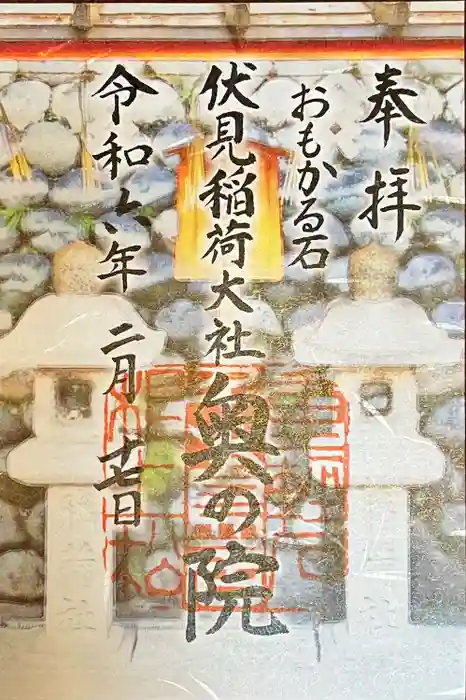 奉拝
おもかる石
伏見稲荷大社
奥の院
令和六年 二月 廿七日